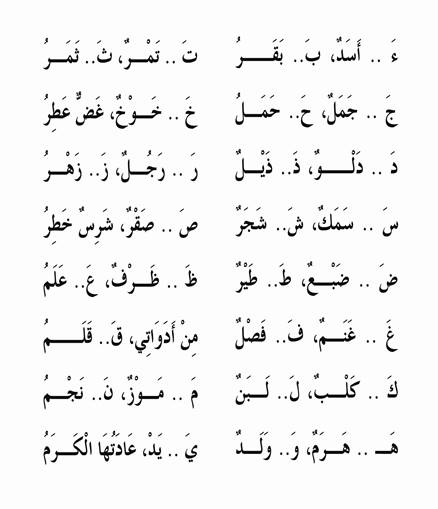 ءَ .. أَسَدٌ، بَ.. بَقَـــرُ تَ .. تَمْـــرٌ، ثَ.. ثَمَـــرُ
جَ .. جَمَلٌ، حَ.. حَمَـــلُ خَ .. خَـــوْخٌ، غَضٌّ عَطِرُ
دَ .. دَلْـــوٌ، ذَ.. ذَيْـــلٌ رَ .. رَجُـــلٌ، زَ.. زَهْـــرُ
سَ .. سَمَكٌ، شَ.. شَجَرٌ صَ .. صَقْرٌ، شَرِسٌ خَطِرُ
ضَ .. ضَبْـــعٌ، طَ.. طَيْرٌ ظَ .. ظَـــرْفٌ، عَ.. عَلَمُ
غَ .. غَنَـــمٌ، فَ.. فَصْلٌ مِنْ أَدَوَاتِي، قَ.. قَلَـــمُ
كَ .. كَلْـــبٌ، لَ.. لَـــبَنٌ مَ .. مَـــوْزٌ، نَ.. نَجْـــمُ
هَـــ .. هَـــرَمٌ، وَ.. وَلَـــدٌ يَ .. يَدْ، عَادَتُهَا الْكَـــرَمُ